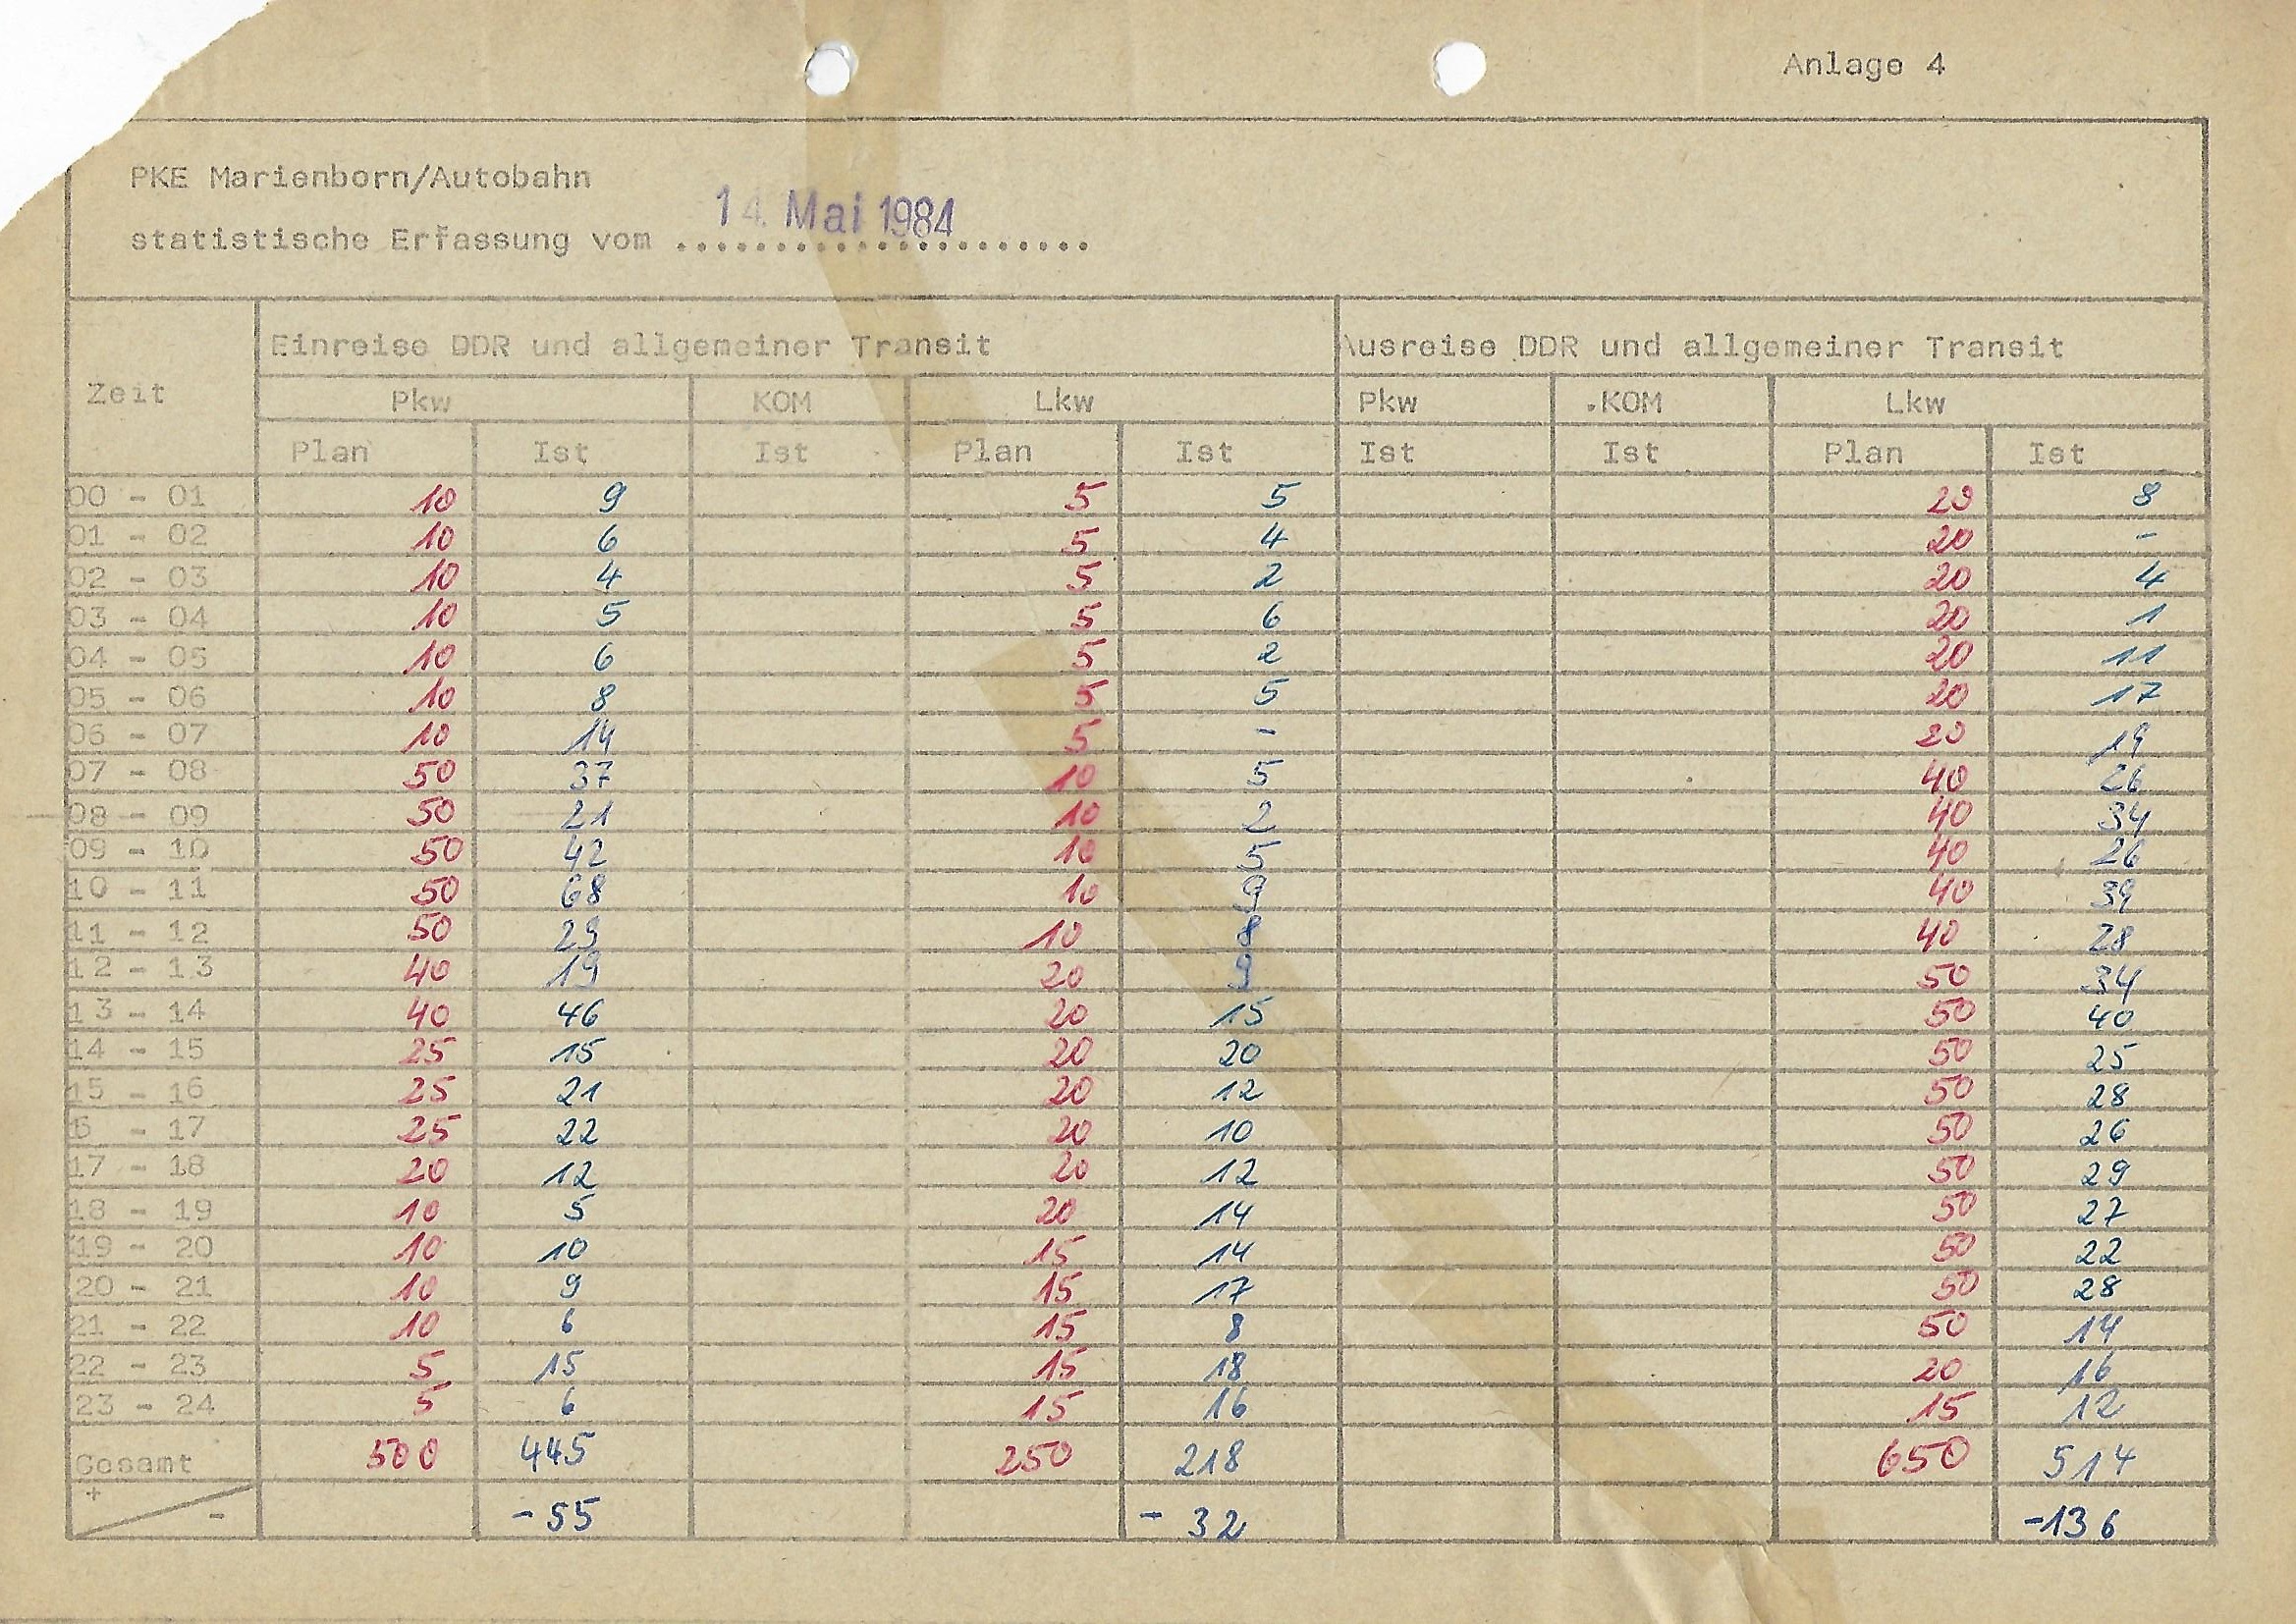 Anlage 4
PKE Marienborn/Autobahn
statistische Erfassung vom 14. Mai 1984
Einreise DDR und allgemeiner Transit Ausreise DDR und allgemeiner Transit
Zeit
Pkw KOM Lkw Pkw .KOM Lkw
Plan Ist Ist Plan Ist Ist Ist Plan Ist
00 - 01 10 9 5 5 20 8
01 - 02 10 6 5 4 20 -
02 - 03 10 4 5 2 20 4
03 - 04 10 5 5 6 20 1
04 - 05 10 6 5 2 20 11
05 - 06 10 8 5 5 20 17
06 - 07 10 14 5 - 20 19
07 - 08 50 37 10 5 40 26
08 - 09 50 21 10 2 40 34
09 - 10 50 42 10 5 40 26
10 - 11 50 68 10 9 40 39
11 - 12 50 29 10 8 40 28
12 - 13 40 19 20 9 50 34
13 - 14 40 46 20 15 50 40
14 - 15 25 15 20 20 50 25
15 - 16 25 21 20 12 50 28
6 - 17 25 22 20 10 50 26
17 - 18 20 12 20 12 50 29
18 - 19 10 5 20 14 50 27
19 - 20 10 10 15 14 50 22
20 - 21 10 9 15 17 50 28
21 - 22 10 6 15 8 50 14
22 - 23 5 15 15 18 20 16
23 - 24 5 6 15 16 15 12
Gesamt 500 445 250 218 650 514
+ - -55 - 32 -136